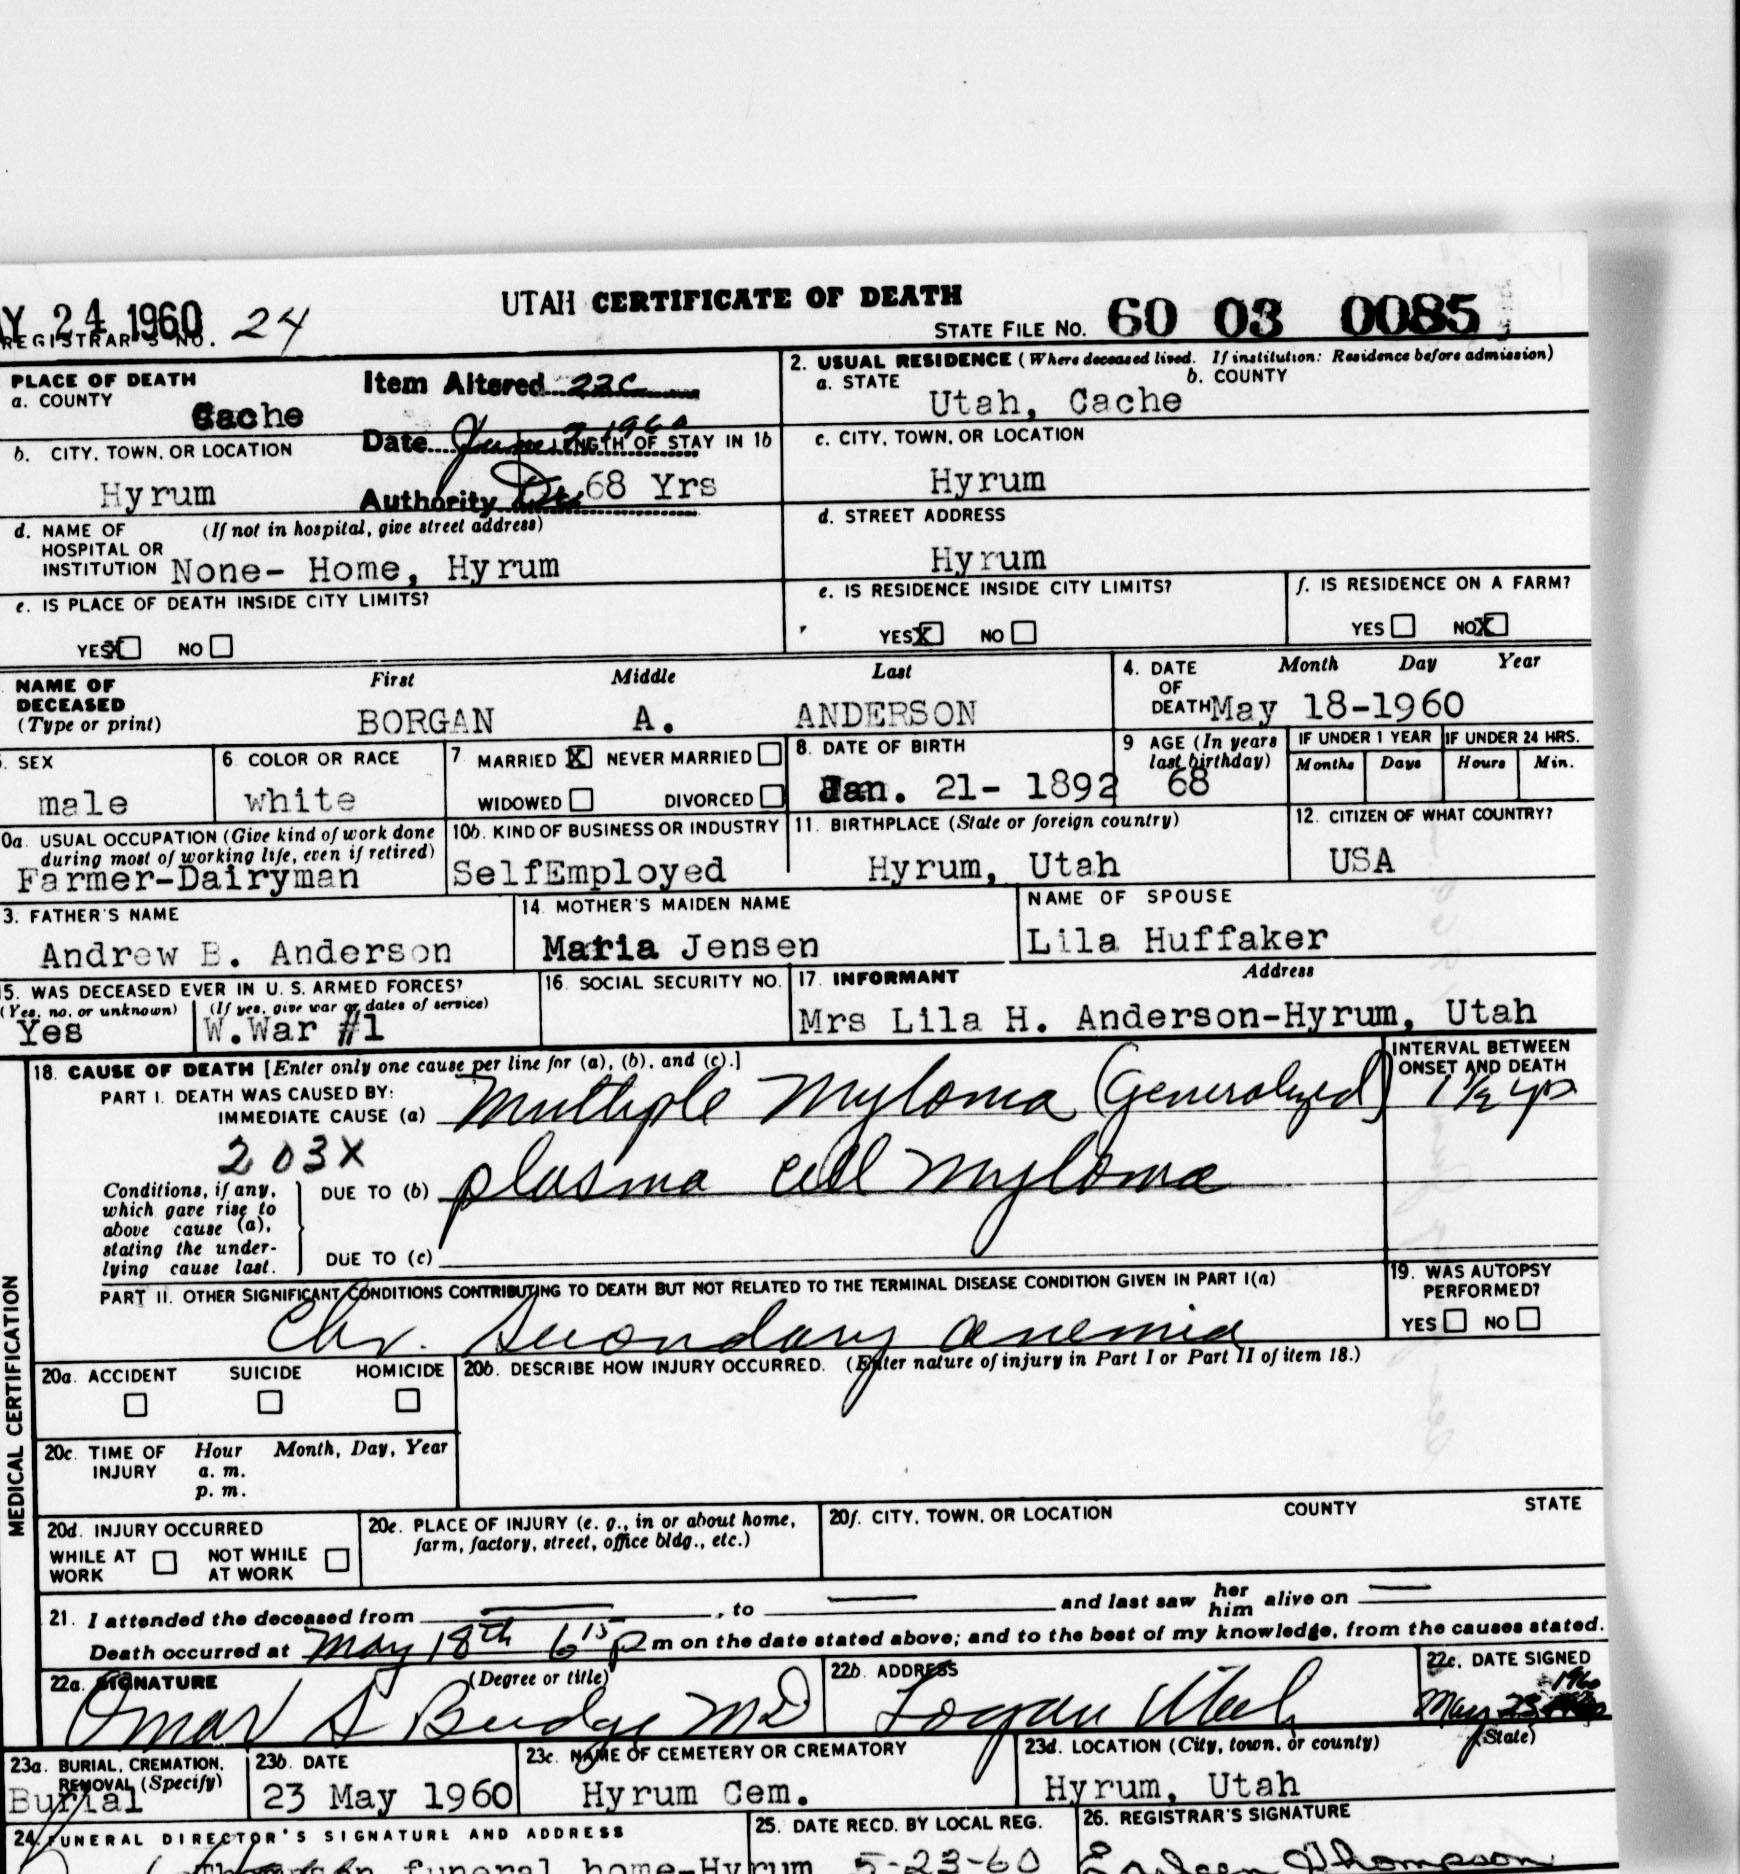 UTAH CERTIFICATE OF DEATH
Y 24 1960 24
REGISTRAR'S NO.
STATE FILE NO. 60 03 0085
PLACE OF DEATH
a. COUNTY
Cache
Item Altered 22c
Date June 1960
Authority Dr.
2. USUAL RESIDENCE (Where deceased lived. If institution: Residence before admission)
a. STATE b. COUNTY
Utah, Cache
b. CITY, TOWN, OR LOCATION
Hyrum
LENGTH OF STAY IN 1b
68 Yrs
c. CITY, TOWN, OR LOCATION
Hyrum
d. NAME OF (If not in hospital, give street address)
HOSPITAL OR
INSTITUTION None- Home, Hyrum
d. STREET ADDRESS
Hyrum
e. IS PLACE OF DEATH INSIDE CITY LIMITS?
YES X NO
e. IS RESIDENCE INSIDE CITY LIMITS?
YES X NO
f. IS RESIDENCE ON A FARM?
YES NO X
NAME OF First Middle Last
DECEASED
(Type or print) BORGAN A. ANDERSON
4. DATE Month Day Year
OF
DEATH May 18-1960
. SEX
male
6 COLOR OR RACE
white
7 MARRIED X NEVER MARRIED
WIDOWED DIVORCED
8. DATE OF BIRTH
Jan. 21- 1892
9 AGE (In years
last birthday)
68
IF UNDER 1 YEAR IF UNDER 24 HRS.
Months Days Hours Min.
0a. USUAL OCCUPATION (Give kind of work done
during most of working life, even if retired)
Farmer-Dairyman
10b. KIND OF BUSINESS OR INDUSTRY
SelfEmployed
11. BIRTHPLACE (State or foreign country)
Hyrum, Utah
12. CITIZEN OF WHAT COUNTRY?
USA
3. FATHER'S NAME
Andrew B. Anderson
14. MOTHER'S MAIDEN NAME
Maria Jensen
NAME OF SPOUSE
Lila Huffaker
5. WAS DECEASED EVER IN U. S. ARMED FORCES?
(Yes, no, or unknown) (If yes, give war or dates of service)
Yes W.War #1
16. SOCIAL SECURITY NO.
17. INFORMANT Address
Mrs Lila H. Anderson-Hyrum, Utah
MEDICAL CERTIFICATION
18. CAUSE OF DEATH [Enter only one cause per line for (a), (b), and (c).]
INTERVAL BETWEEN
ONSET AND DEATH
PART I. DEATH WAS CAUSED BY:
IMMEDIATE CAUSE (a) Multiple Myloma (Generalized) 1 1/2 yrs
203X
Conditions, if any,
which gave rise to
above cause (a),
stating the under-
lying cause last.
DUE TO (b) plasma cell myloma
DUE TO (c)
PART II. OTHER SIGNIFICANT CONDITIONS CONTRIBUTING TO DEATH BUT NOT RELATED TO THE TERMINAL DISEASE CONDITION GIVEN IN PART I(a)
Chr. Secondary anemia
19. WAS AUTOPSY
PERFORMED?
YES NO
20a. ACCIDENT SUICIDE HOMICIDE
20b. DESCRIBE HOW INJURY OCCURRED. (Enter nature of injury in Part I or Part II of item 18.)
20c. TIME OF Hour Month, Day, Year
INJURY a. m.
p. m.
20d. INJURY OCCURRED
WHILE AT NOT WHILE
WORK AT WORK
20e. PLACE OF INJURY (e. g., in or about home,
farm, factory, street, office bldg., etc.)
20f. CITY, TOWN, OR LOCATION COUNTY STATE
21. I attended the deceased from , to and last saw her him alive on
Death occurred at May 18th 6 15 p m on the date stated above; and to the best of my knowledge, from the causes stated.
22a. SIGNATURE (Degree or title)
Omar S Budge MD
22b. ADDRESS
Logan Utah
22c. DATE SIGNED
May 23 1960
23a. BURIAL, CREMATION,
REMOVAL (Specify)
Burial
23b. DATE
23 May 1960
23c. NAME OF CEMETERY OR CREMATORY
Hyrum Cem.
23d. LOCATION (City, town, or county) (State)
Hyrum, Utah
24. FUNERAL DIRECTOR'S SIGNATURE AND ADDRESS
funeral home-Hyrum
25. DATE RECD. BY LOCAL REG.
5-23-60
26. REGISTRAR'S SIGNATURE
Thompson